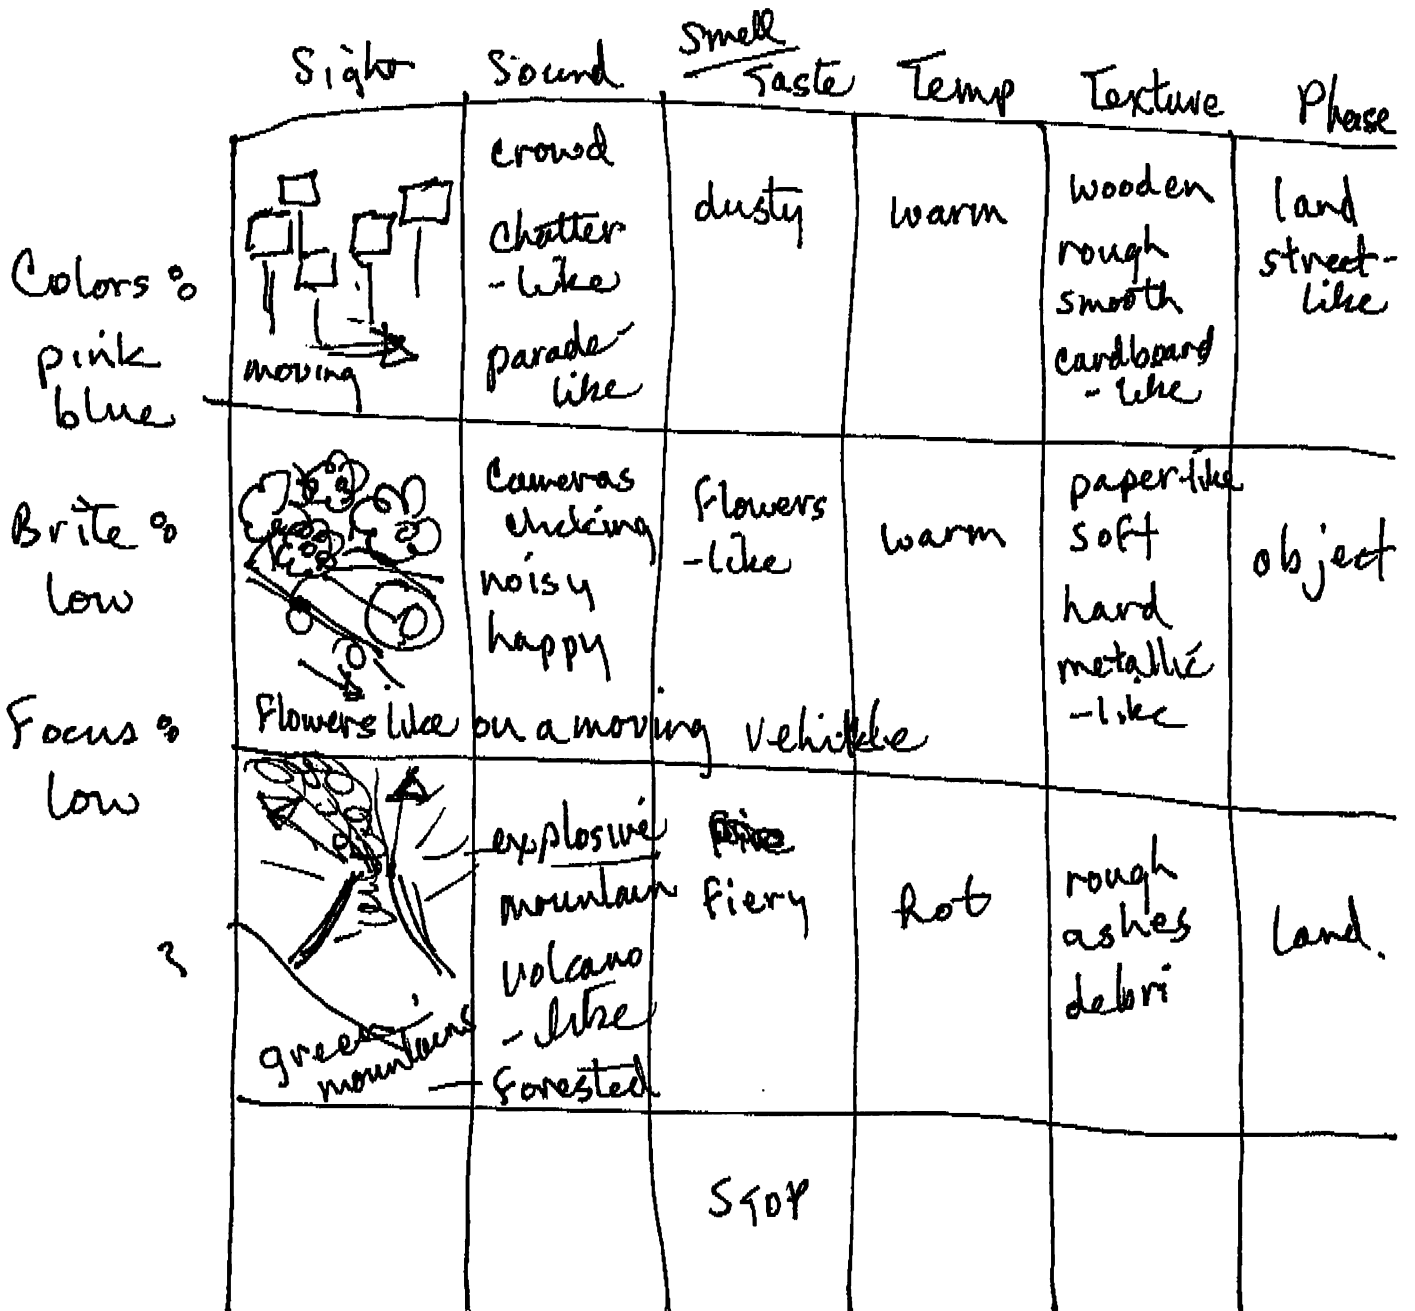 Sight Sound Smell/Taste Temp Texture Phase
Colors:
pink
blue
Brite:
low
Focus:
low
?
moving
crowd
chatter
-like
parade-
like
dusty
warm
wooden
rough
smooth
cardboard
-like
land
street-
like
Flowers like on a moving vehikle
Cameras
clicking
noisy
happy
flowers
-like
warm
paper-like
soft
hard
metallic
-like
object
green
mountains
explosive
mountain
volcano
-like
- forested
fiery
hot
rough
ashes
debri
land.
STOP